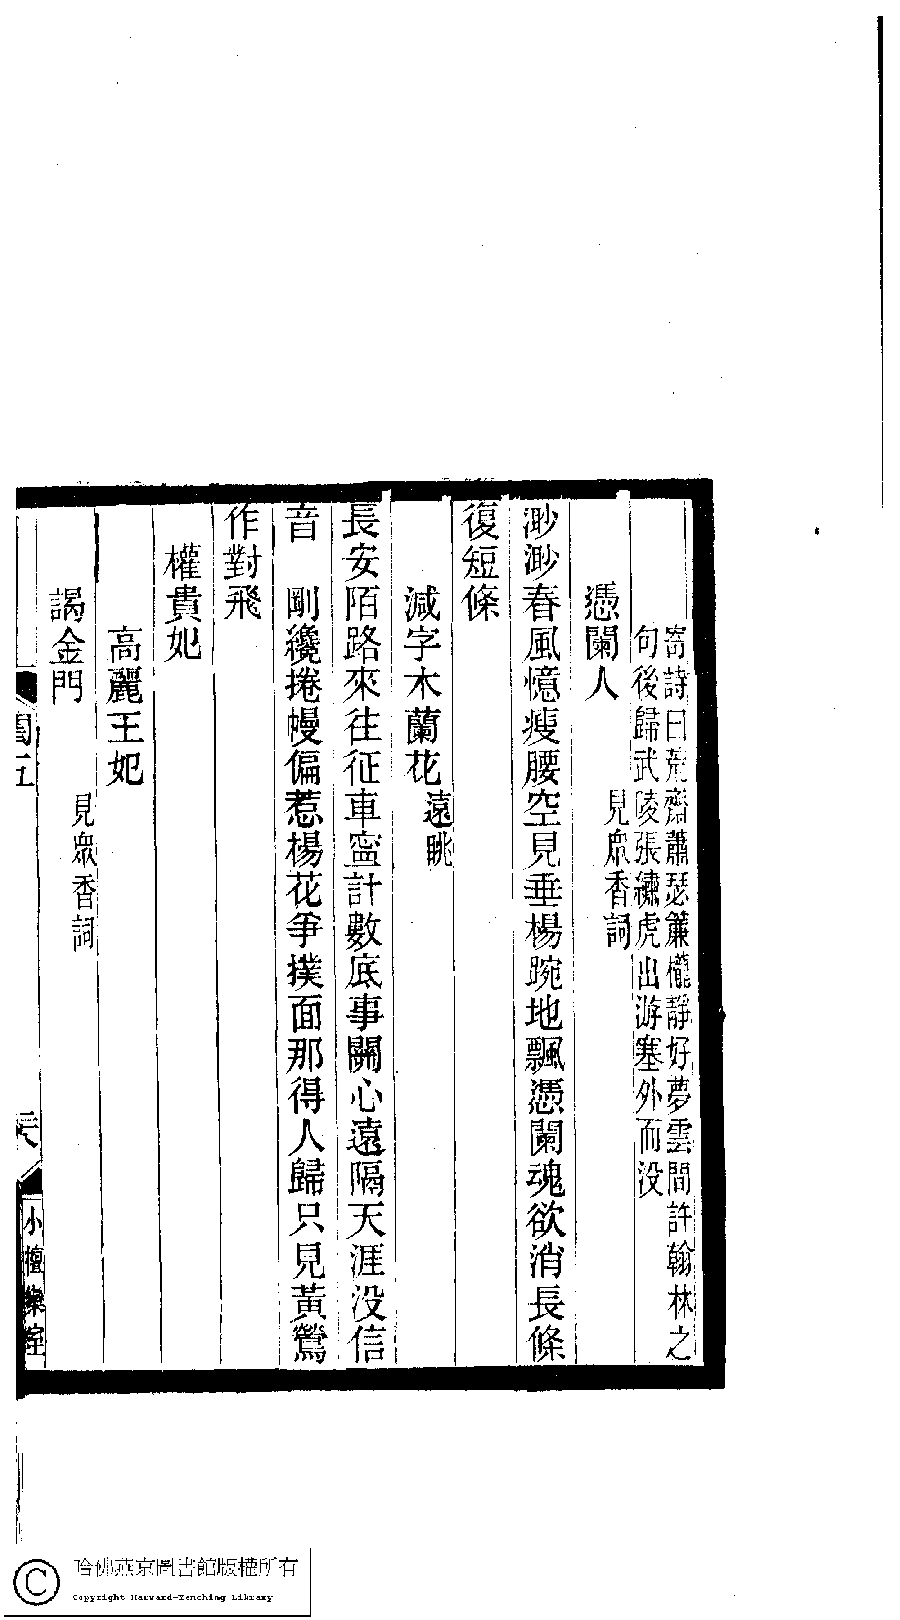 寄詩曰荒齋蕭瑟簾櫳靜好夢雲間許翰林之
句後歸武陵張繡虎出游塞外而没
憑闌人　見眾香詞
渺渺春風憶瘦腰空見垂楊踠地飄憑闌魂欲消長條
復短條
減字木蘭花　遠眺
長安陌路來往征車寧計數底事關心遠隔天涯没信
音　剛纔捲幔偏惹楊花爭撲面那得人歸只見黃鶯
作對飛
權貴妃
高麗王妃
謁金門　見眾香詞
閨五
小檀欒室
哈佛燕京圖書館版權所有
Copyright Harvard-Yenching Library